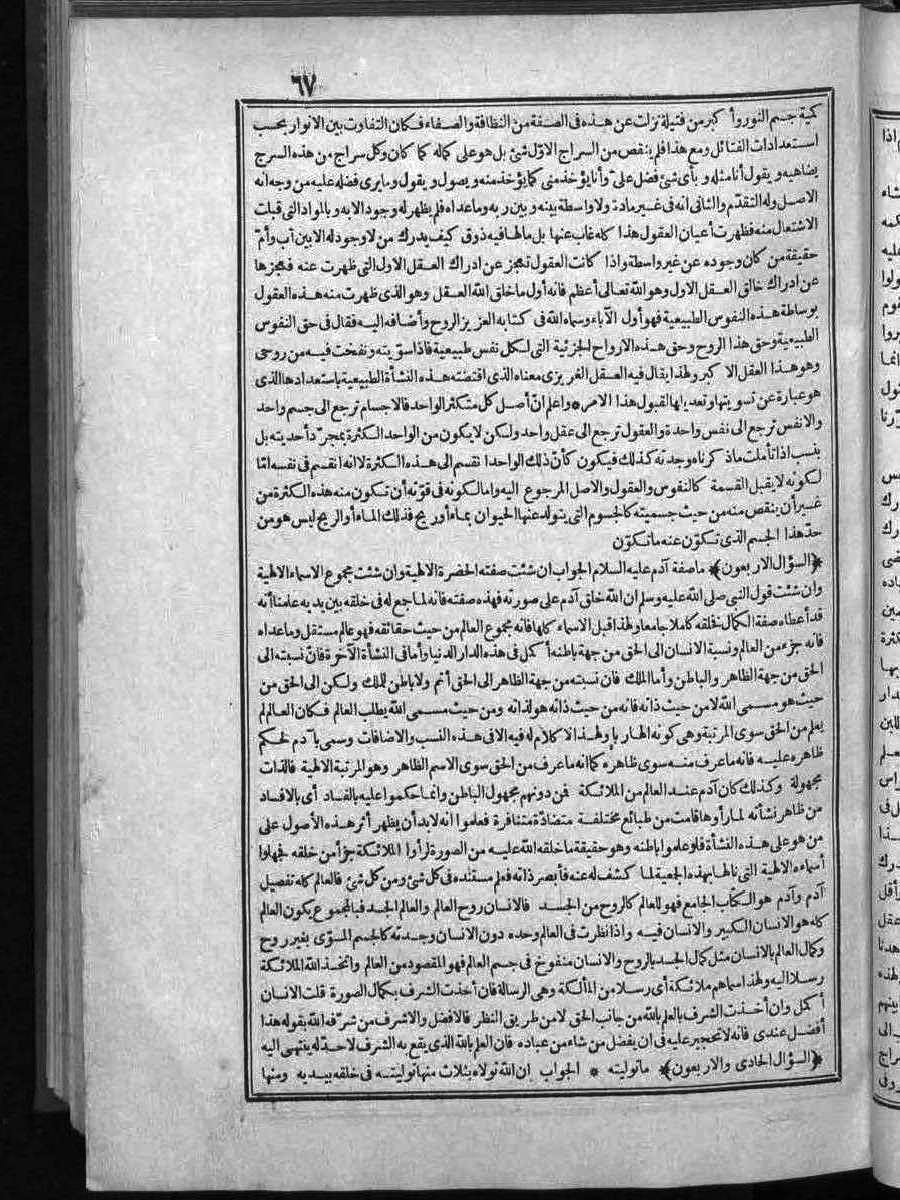 ٦٧
كمية جسم النور وأكبر من فتيلة نزلت عن هذه فى الصفة من النظافة والصفاء فكان التفاوت بين الانوار بحسب
استعدادات الفتائل ومع هذا فلم ينقص من السراج الاوّل شئ بل هو على كماله كما كان وكل سراج من هذه السرج
يضاهيه ويقول أنا مثله وبأى شئ فضل علىّ وأنا يؤخذ منى كما يؤخذ منه ويصول ويقول وما يرى فضله عليه من وجه انه
الاصل وله التقدّم والثانى انه فى غير مادة ولا واسطة بينه وبين ربه وما عداه فلم يظهر له وجود الا به وبالمواد التى قبلت
الاشتعال منه فظهرت أعيان العقول هذا كله غاب عنها بل ما لها فيه ذوق كيف يدرك من لا وجود له الا بين أب وأمّ
حقيقة من كان وجوده عن غير واسطة واذا كانت العقول تعجز عن ادراك العقل الاول التى ظهرت عنه فعجزها
عن ادراك خالق العقل الاول وهو الله تعالى أعظم فانه أول ما خلق الله العقل وهو الذى ظهرت منه هذه العقول
بوساطة هذه النفوس الطبيعية فهو أول الآباء وسماه الله فى كتابه العزيز الروح وأضافه اليه فقال فى حق النفوس
الطبيعية وحق هذا الروح وحق هذه الارواح الجزئية التى لكل نفس طبيعية فاذا سوّيته ونفخت فيه من روحى
وهو هذا العقل الاكبر ولهذا يقال فيه العقل الغريزى معناه الذى اقتضته هذه النشأة الطبيعية باستعدادها الذى
هو عبارة عن تسويتها وتعديلها لقبول هذا الامر * واعلم انّ أصل كل متكثر الواحد فالاجسام ترجع الى جسم واحد
والانفس ترجع الى نفس واحدة والعقول ترجع الى عقل واحد ولكن لا يكون من الواحد الكثرة بمجرّد أحديته بل
بنسب اذا تأملت ما ذكرناه وجدته كذلك فيكون كأنّ ذلك الواحد انقسم الى هذه الكثرة لا انه انقسم فى نفسه امّا
لكونه لا يقبل القسمة كالنفوس والعقول والاصل المرجوع اليه واما لكونه فى قوّته أن تكون منه هذه الكثرة من
غير أن ينقص منه من حيث جسميته كالجسوم التى يتولد عنها الحيوان بماء أو ريح فذلك الماء أو الريح ليس هو من
حدّ هذا الجسم الذى تكوّن عنه ما تكوّن
﴿السؤال الاربعون﴾ ما صفة آدم عليه السلام الجواب ان شئت صفته الحضرة الالهية وان شئت مجموع الاسماء الالهية
وان شئت قول النبى صلى الله عليه وسلم ان الله خلق آدم على صورته فهذه صفته فانه لما جمع له فى خلقه بين يديه علمنا أنه
قد أعطاه صفة الكمال فخلقه كاملا جامعا ولهذا قبل الاسماء كلها فانه مجموع العالم من حيث حقائقه فهو عالم مستقل وما عداه
فانه جزء من العالم ونسبة الانسان الى الحق من جهة باطنه أكمل فى هذه الدار الدنيا وأما فى النشأة الآخرة فانّ نسبته الى
الحق من جهة الظاهر والباطن وأما الملك فان نسبته من جهة الظاهر الى الحق أتم ولا باطن للملك ولكن الى الحق من
حيث هو مسمى الله لا من حيث ذاته فانه من حيث ذاته هو لذاته ومن حيث مسمى الله يطلب العالم فكان العالم لم
يعلم من الحق سوى المرتبة وهى كونه الها ربا ولهذا لا كلام له فيه الا فى هذه النسب والاضافات وسمى بآدم لحكم
ظاهره عليه فانه ما عرف منه سوى ظاهره كما انه ما عرف من الحق سوى الاسم الظاهر وهو المرتبة الالهية فالذات
مجهولة وكذلك كان آدم عند العالم من الملائكة فمن دونهم مجهول الباطن وانما حكموا عليه بالفساد أى بالافساد
من ظاهر نشأته لما رأوها قامت من طبائع مختلفة متضادّة متنافرة فعلموا انه لا بد أن يظهر أثر هذه الأصول على
من هو على هذه النشأة فلو علموا باطنه وهو حقيقة ما خلقه الله عليه من الصورة لرأوا الملائكة جزأ من خلقه فجهلوا
أسماءه الالهية التى نالها بهذه الجمعية لما كشف له عنه فأبصر ذاته فعلم مستنده فى كل شئ ومن كل شئ فالعالم كله تفصيل
آدم وآدم هو الكتاب الجامع فهو للعالم كالروح من الجسد فالانسان روح العالم والعالم الجسد فبالمجموع يكون العالم
كله هو الانسان الكبير والانسان فيه واذا نظرت فى العالم وحده دون الانسان وجدته كالجسم المسوّى بغير روح
وكمال العالم بالانسان مثل كمال الجسد بالروح والانسان منفوخ فى جسم العالم فهو المقصود من العالم واتخذ الله الملائكة
رسلا اليه ولهذا سماهم ملائكة أى رسلا من المألكة وهى الرسالة فان أخذت الشرف بكمال الصورة قلت الانسان
أكمل وان أخذت الشرف بالعلم بالله من جانب الحق لا من طريق النظر فالافضل والاشرف من شرّفه الله بقوله هذا
أفضل عندى فانه لا تحجير عليه فى ان يفضل من شاء من عباده فان العلم بالله الذى يقع به الشرف لا حدّ له ينتهى اليه
﴿السؤال الحادى والاربعون﴾ ما توليته * الجواب ان الله تولاه بثلاث منها توليته فى خلقه بيديه ومنها